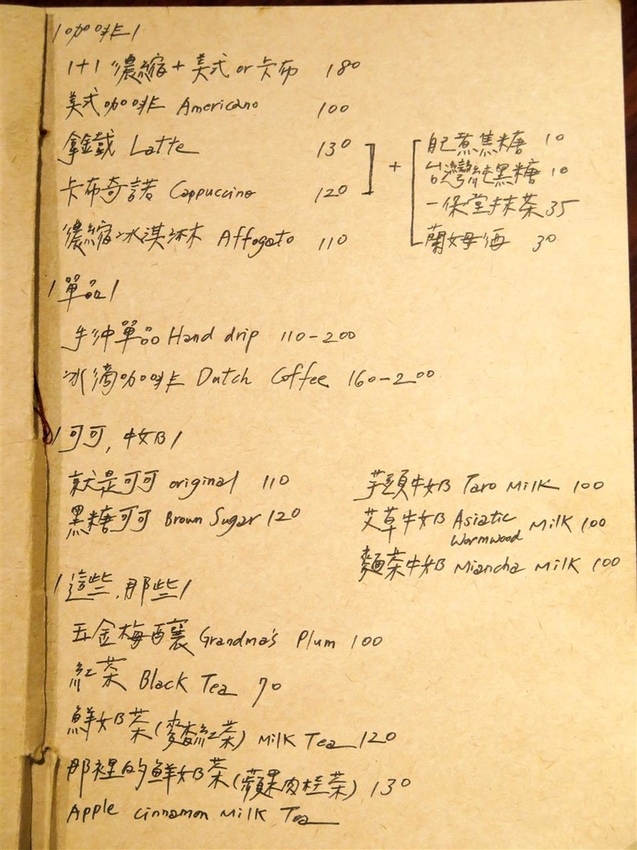 |咖啡|
1+1 濃縮+美式 or 卡布 180
美式咖啡 Americano 100
拿鐵 Latte 130
卡布奇諾 Cappuccino 120
+
自己煮焦糖 10
台灣純黑糖 10
一保堂抹茶 35
蘭姆酒 30
濃縮冰淇淋 Affogato 110
|單品|
手沖單品 Hand drip 110-200
冰滴咖啡 Dutch Coffee 160-200
|可可,牛奶|
就是可可 original 110
黑糖可可 Brown Sugar 120
芋頭牛奶 Taro Milk 100
艾草牛奶 Asiatic Wormwood Milk 100
麵茶牛奶 Miancha Milk 100
|這些,那些|
五金梅釀 Grandma's Plum 100
紅茶 Black Tea 70
鮮奶茶(麥香紅茶) Milk Tea 120
那裡的鮮奶茶(蘋果肉桂茶) 130
Apple cinnamon Milk Tea